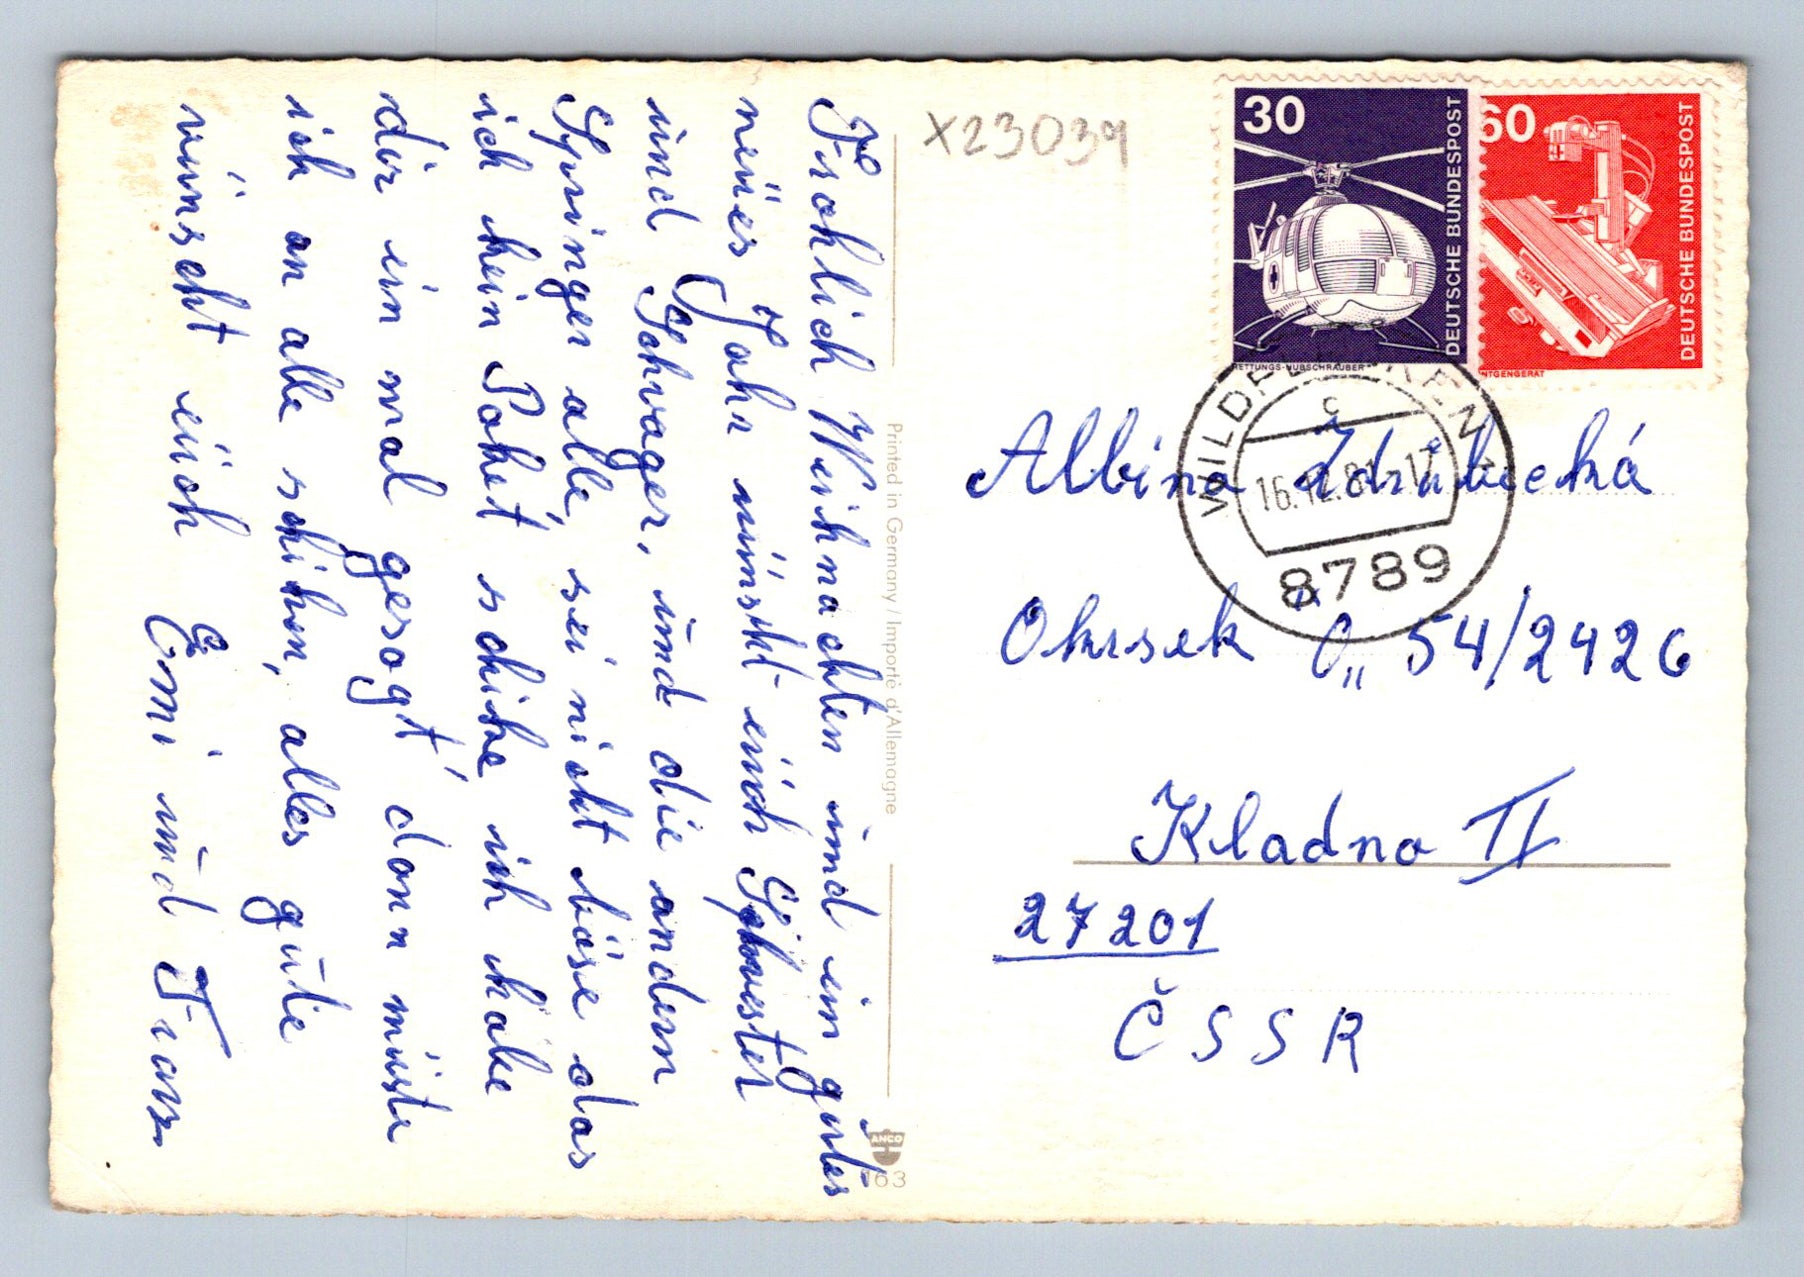 Frohlich Weihnachten und ein gutes
neües Jahr wünscht eüch Schwester
und Schwager. und die andern
Springer alle, sei nicht böse das
ich kein Paket schike, ich habe
dir ein mal gesagt, dann müste
ich an alle schiken, alles gute
wünscht eüch Emi und Franz
Printed in Germany / Importé d'Allemagne
ANCO
163
X23039
30
DEUTSCHE BUNDESPOST
RETTUNGS-HUBSCHRAUBER
60
DEUTSCHE BUNDESPOST
NTGENGERÄT
WILDFLECKEN 1
c
16.12.81-17
8789
Albina Zdrubecká
Okrsek O„ 54/2426
Kladno II
27201
ČSSR